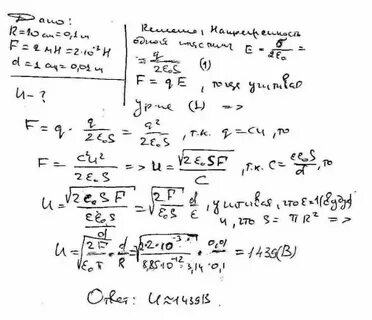 Дано:
R=10 см=0,1м
F=2 мН=2·10⁻³Н
d=1 см=0,01м
U-?
Решение: Напряженность
одной пластины E = σ/2ε₀
= q/2ε₀S (1)
F = qE, тогда учитывая
ур-ие (1) =>
F = q · q/2ε₀S = q²/2ε₀S, т.к. q=CU, то
F = C²U²/2ε₀S => U = √2ε₀SF/C, т.к. C = εε₀S/d, то
U = √2ε₀SF/(εε₀S/d) = √(2F/ε₀S) d/ε, учитывая, что ε=1 (воздух)
и, что S = πR² =>
U = √(2F/ε₀π) · d/R = √(2·2·10⁻³/8,85·10⁻¹²·3,14) · 0,01/0,1 = 1439(В)
Ответ: U≈1439В.